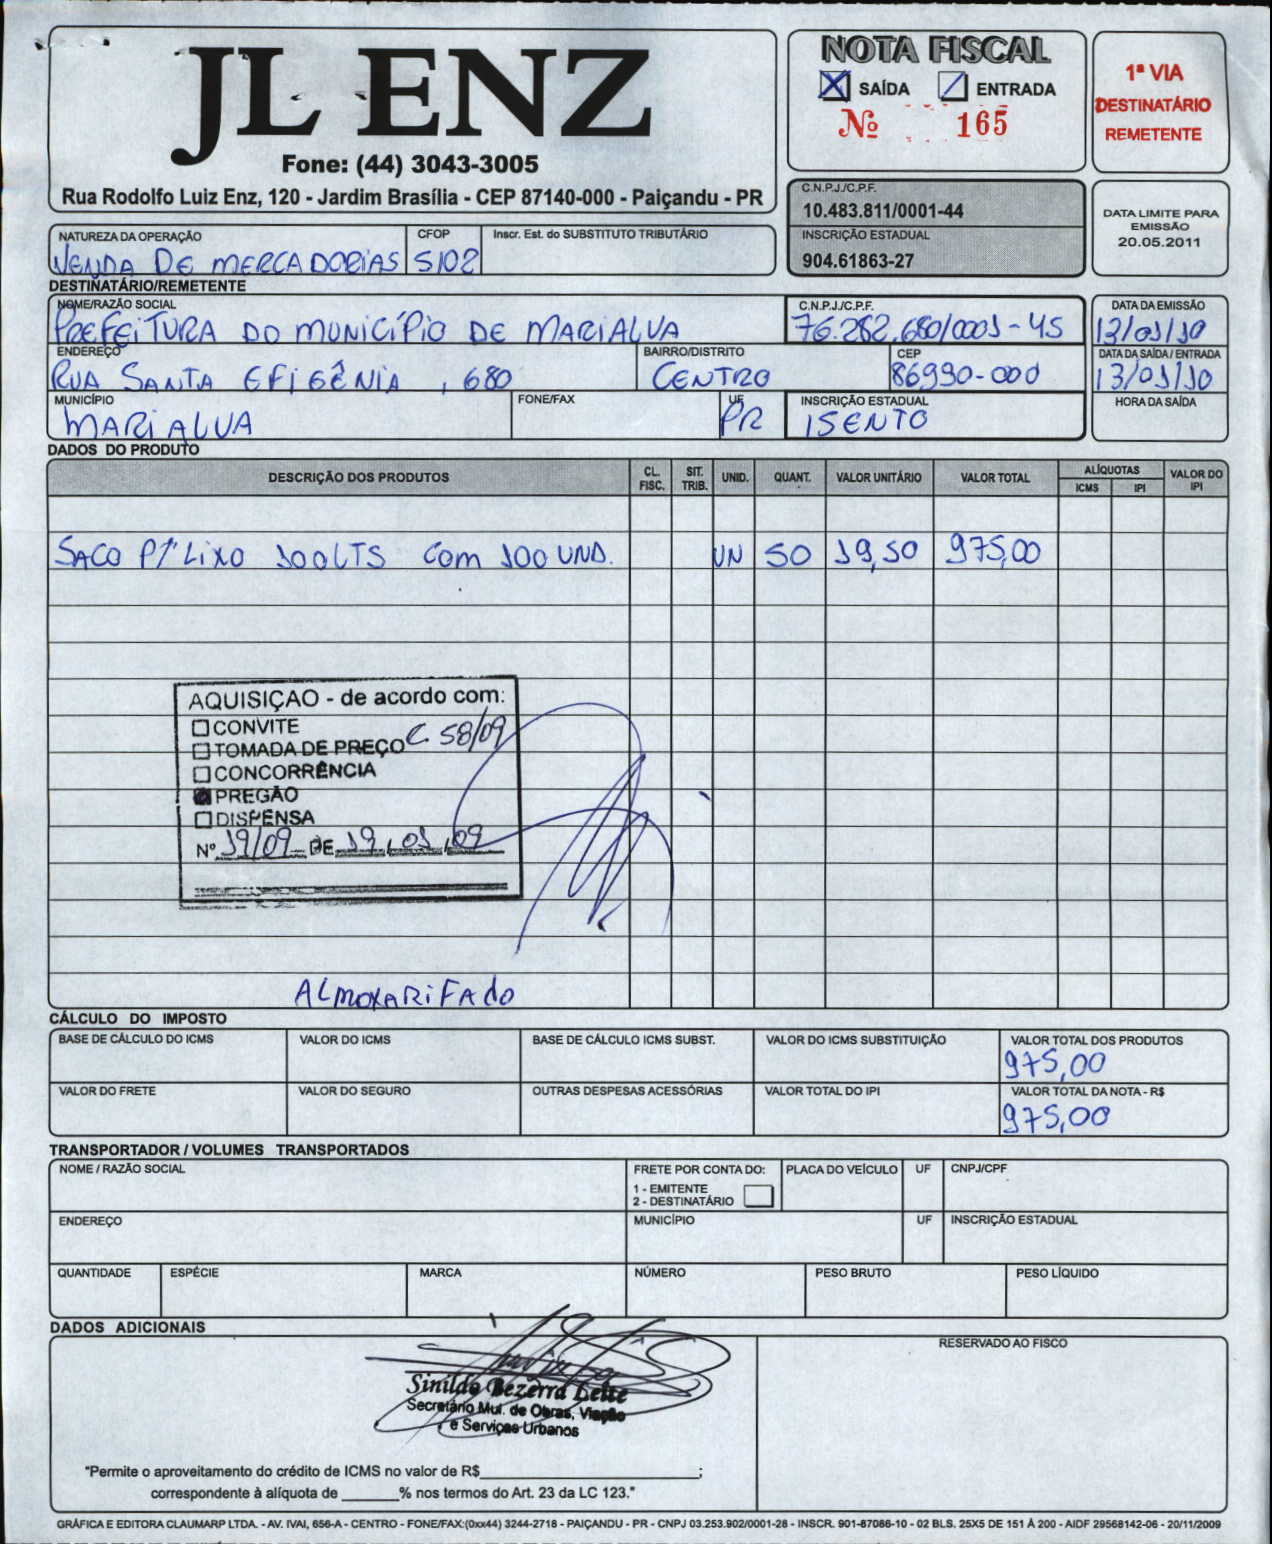 JL ENZ
Fone: (44) 3043-3005
Rua Rodolfo Luiz Enz, 120 - Jardim Brasília - CEP 87140-000 - Paiçandu - PR
NOTA FISCAL
SAÍDA ENTRADA
Nº 165
1ª VIA
DESTINATÁRIO
REMETENTE
C.N.P.J./C.P.F.
10.483.811/0001-44
INSCRIÇÃO ESTADUAL
904.61863-27
DATA LIMITE PARA
EMISSÃO
20.05.2011
NATUREZA DA OPERAÇÃO CFOP Inscr. Est. do SUBSTITUTO TRIBUTÁRIO
VENDA DE MERCADORIAS 5102
DESTINATÁRIO/REMETENTE
NOME/RAZÃO SOCIAL C.N.P.J./C.P.F. DATA DA EMISSÃO
PREFEITURA DO MUNICÍPIO DE MARIALVA 76.282.680/0001-45 13/01/10
ENDEREÇO BAIRRO/DISTRITO CEP DATA DA SAÍDA / ENTRADA
RUA SANTA EFIGÊNIA, 680 CENTRO 86990-000 13/01/10
MUNICÍPIO FONE/FAX UF INSCRIÇÃO ESTADUAL HORA DA SAÍDA
MARIALVA PR ISENTO
DADOS DO PRODUTO
DESCRIÇÃO DOS PRODUTOS CL. FISC. SIT. TRIB. UNID. QUANT. VALOR UNITÁRIO VALOR TOTAL ALÍQUOTAS ICMS IPI VALOR DO IPI
SACO P/ LIXO 100LTS COM 100 UND. UN 50 19,50 975,00
AQUISIÇÃO - de acordo com:
CONVITE
TOMADA DE PREÇO C. 58/09
CONCORRÊNCIA
PREGÃO
DISPENSA
Nº 19/09 DE 19,01,09
ALMOXARIFADO
CÁLCULO DO IMPOSTO
BASE DE CÁLCULO DO ICMS VALOR DO ICMS BASE DE CÁLCULO ICMS SUBST. VALOR DO ICMS SUBSTITUIÇÃO VALOR TOTAL DOS PRODUTOS
975,00
VALOR DO FRETE VALOR DO SEGURO OUTRAS DESPESAS ACESSÓRIAS VALOR TOTAL DO IPI VALOR TOTAL DA NOTA - R$
975,00
TRANSPORTADOR / VOLUMES TRANSPORTADOS
NOME / RAZÃO SOCIAL FRETE POR CONTA DO: PLACA DO VEÍCULO UF CNPJ/CPF
1 - EMITENTE
2 - DESTINATÁRIO
ENDEREÇO MUNICÍPIO UF INSCRIÇÃO ESTADUAL
QUANTIDADE ESPÉCIE MARCA NÚMERO PESO BRUTO PESO LÍQUIDO
DADOS ADICIONAIS
RESERVADO AO FISCO
Sinildo Bezerra Leite
Secretário Mul. de Obras, Viação
e Serviços Urbanos
"Permite o aproveitamento do crédito de ICMS no valor de R$ ;
correspondente à alíquota de % nos termos do Art. 23 da LC 123."
GRÁFICA E EDITORA CLAUMARP LTDA. - AV. IVAI, 656-A - CENTRO - FONE/FAX:(0xx44) 3244-2718 - PAIÇANDU - PR - CNPJ 03.253.902/0001-28 - INSCR. 901-87086-10 - 02 BLS. 25X5 DE 151 À 200 - AIDF 29568142-06 - 20/11/2009